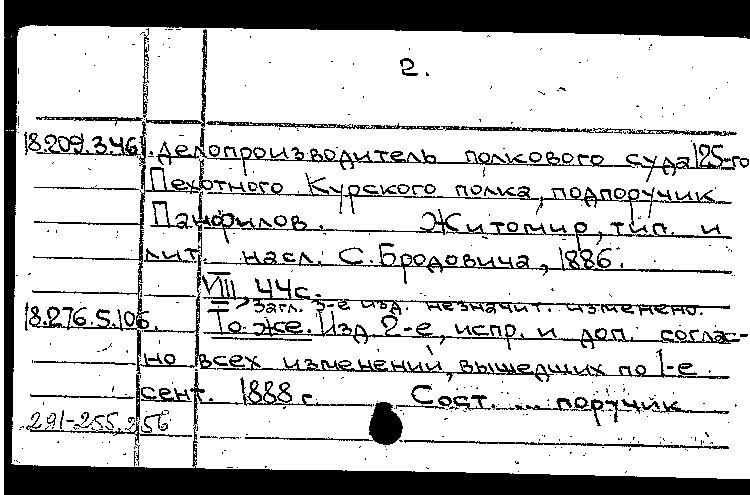 2.
18.209.3.46. делопроизводитель полкового суда 125-го
Пехотного Курского полка, подпоручик
Панфилов. Житомир, тип. и
лит. насл. С. Бродовича, 1886.
VIII, 44с.
Загл. 3-е изд. незначит. изменено.
18.276.5.106. То же. Изд. 2-е, испр. и доп. соглас-
но всех изменений, вышедших по 1-е
сент. 1888 г. Сост. ... поручик
291-255.256